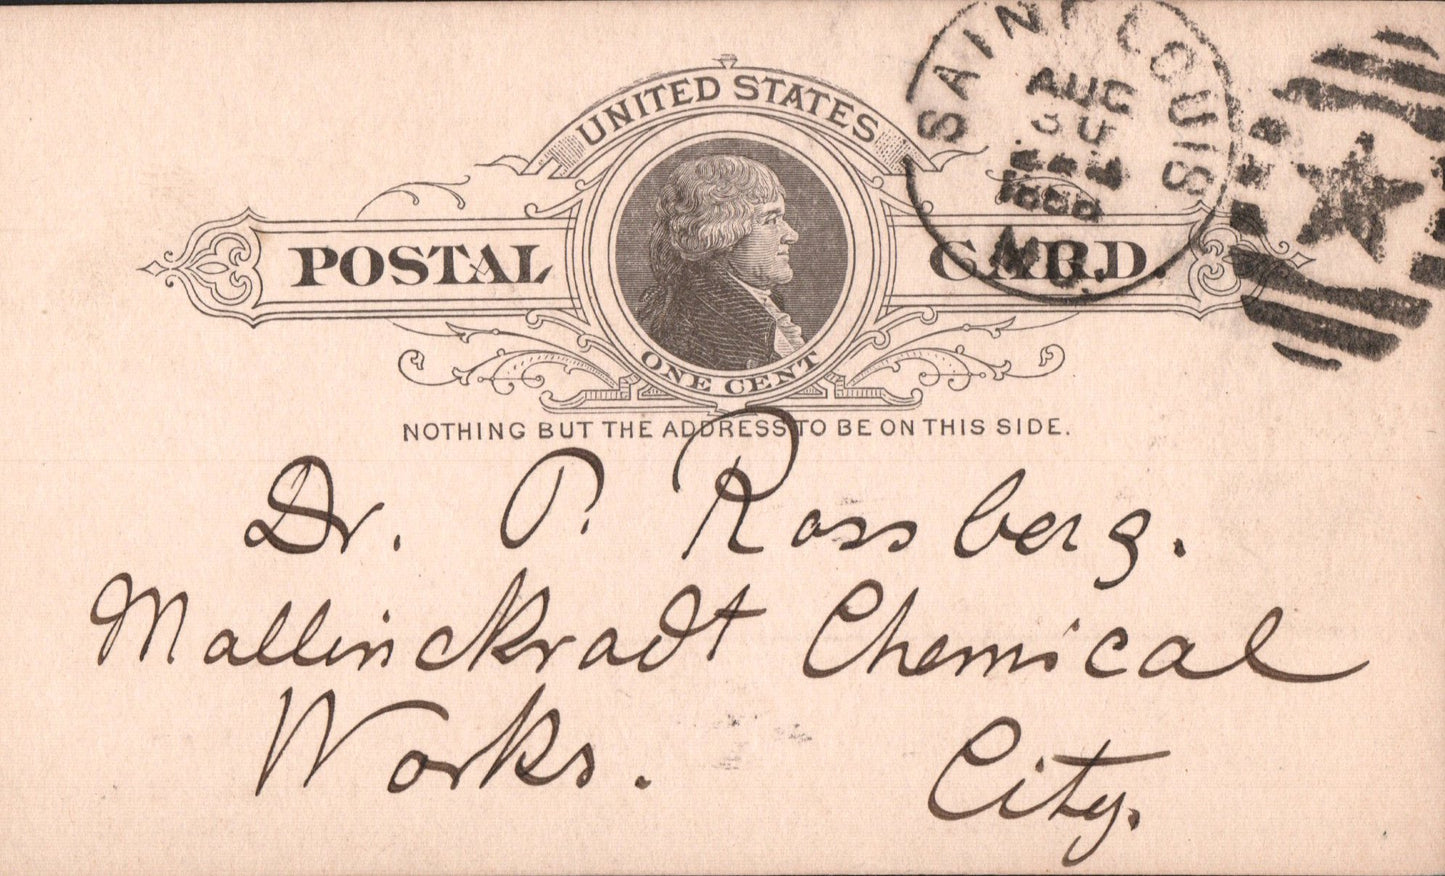 UNITED STATES
POSTAL CARD.
ONE CENT
NOTHING BUT THE ADDRESS TO BE ON THIS SIDE.
SAINT LOUIS
AUG
30
MO.
Dr. P. Rossberg.
Mallinckrodt Chemical
Works. City.